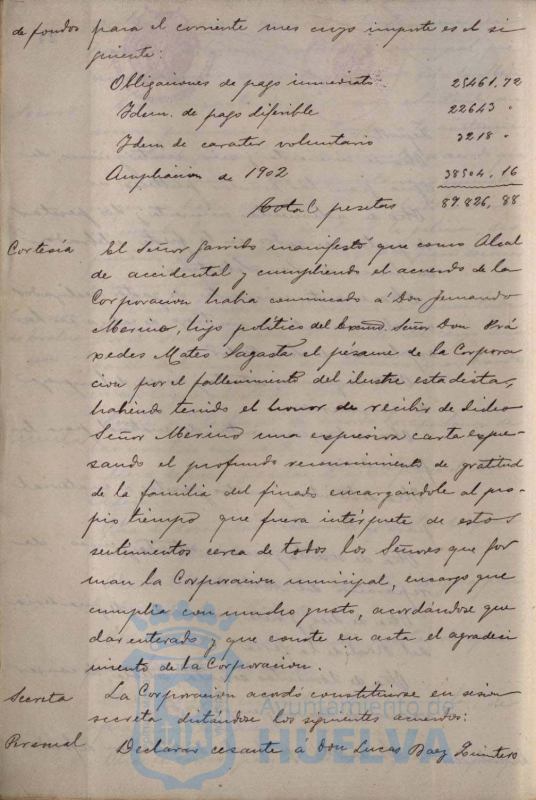 de fondos para el corriente mes cuyo importe es el si
guiente:
Obligaciones de pago inmediato 25461,72
Idem. de pago diferible 22643 "
Idem de caracter voluntario 3218 "
Ampliacion de 1902 38504,16
total pesetas 89.826,88
Cortesía El Señor Garrido manifestó que como Alcal
de accidental y cumpliendo el acuerdo de la
Corporacion habia comunicado á Don Fernando
Merino, hijo político del Excmo. Señor Don Prá
xedes Mateo Sagasta el pésame de la Corpora
cion por el fallecimiento del ilustre estadista,
habiendo tenido el honor de recibir de dicho
Señor Merino una expresiva carta expre-
sando el profundo reconocimiento de gratitud
de la familia del finado encargándole al pro-
pio tiempo que fuera intérprete de estos
sentimientos cerca de todos los Señores que for
man la Corporacion municipal, encargo que
cumplia con mucho gusto, acordándose que
dar enterado y que conste en acta el agradeci
miento de la Corporacion.
Secreta La Corporacion acordó constituirse en sesion
secreta dictándose los siguientes acuerdos:
Personal Declarar cesante á Don Lucas Baez Quintero
Ayuntamiento de
HUELVA